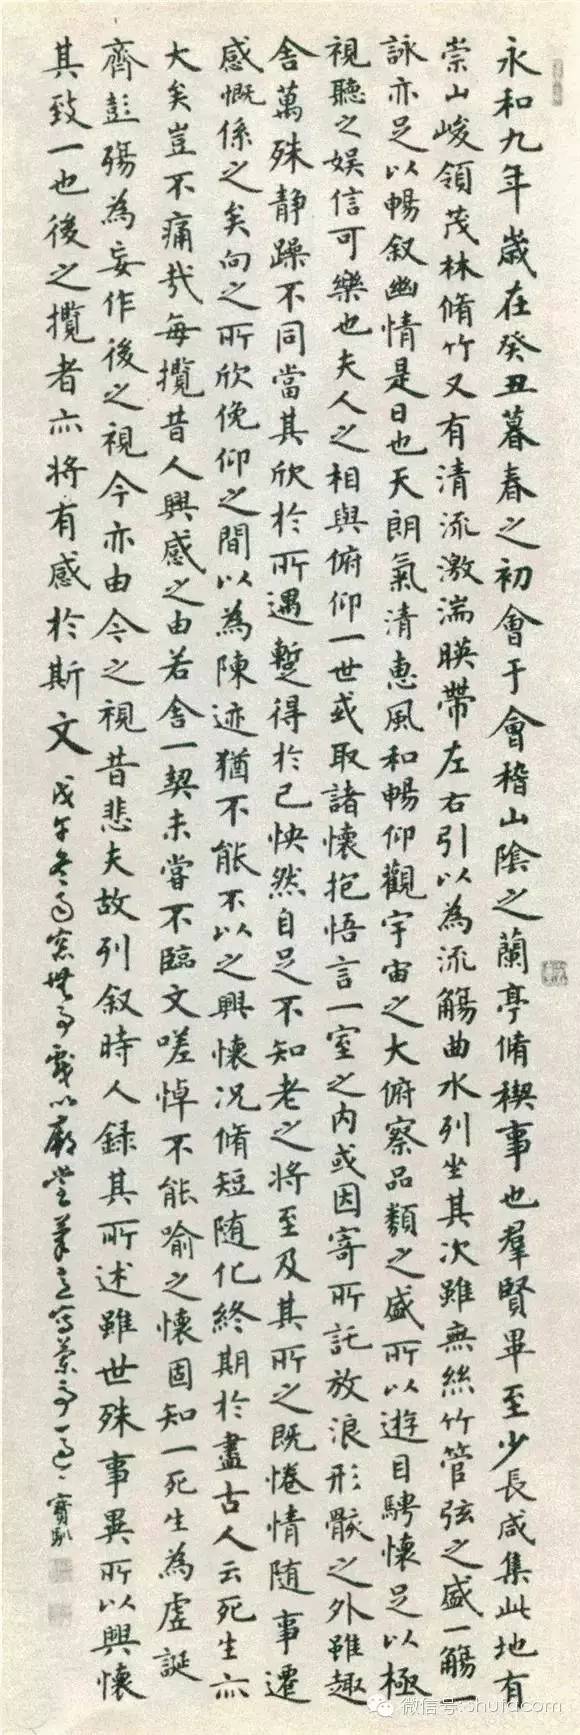 永和九年歲在癸丑暮春之初會于會稽山陰之蘭亭脩稧事也羣賢畢至少長咸集此地有
崇山峻領茂林脩竹又有清流激湍暎帶左右引以為流觴曲水列坐其次雖無絲竹管弦之盛一觴一
詠亦足以暢叙幽情是日也天朗氣清惠風和暢仰觀宇宙之大俯察品類之盛所以遊目騁懷足以極
視聽之娛信可樂也夫人之相與俯仰一世或取諸懷抱悟言一室之内或因寄所託放浪形骸之外雖趣
舍萬殊静躁不同當其欣於所遇蹔得於己怏然自足不知老之將至及其所之既惓情随事遷
感慨係之矣向之所欣俛仰之間以為陳迹猶不能不以之興懷况脩短随化終期於盡古人云死生亦
大矣豈不痛哉每攬昔人興感之由若合一契未嘗不臨文嗟悼不能喻之懷固知一死生為虛誕
齊彭殤為妄作後之視今亦由今之視昔悲夫故列叙時人録其所述雖世殊事異所以興懷
其致一也後之攬者亦將有感於斯文
戊午冬雨窓無事戲以廟堂筆意寫蘭亭一過寶熙
微信号: shufa.com